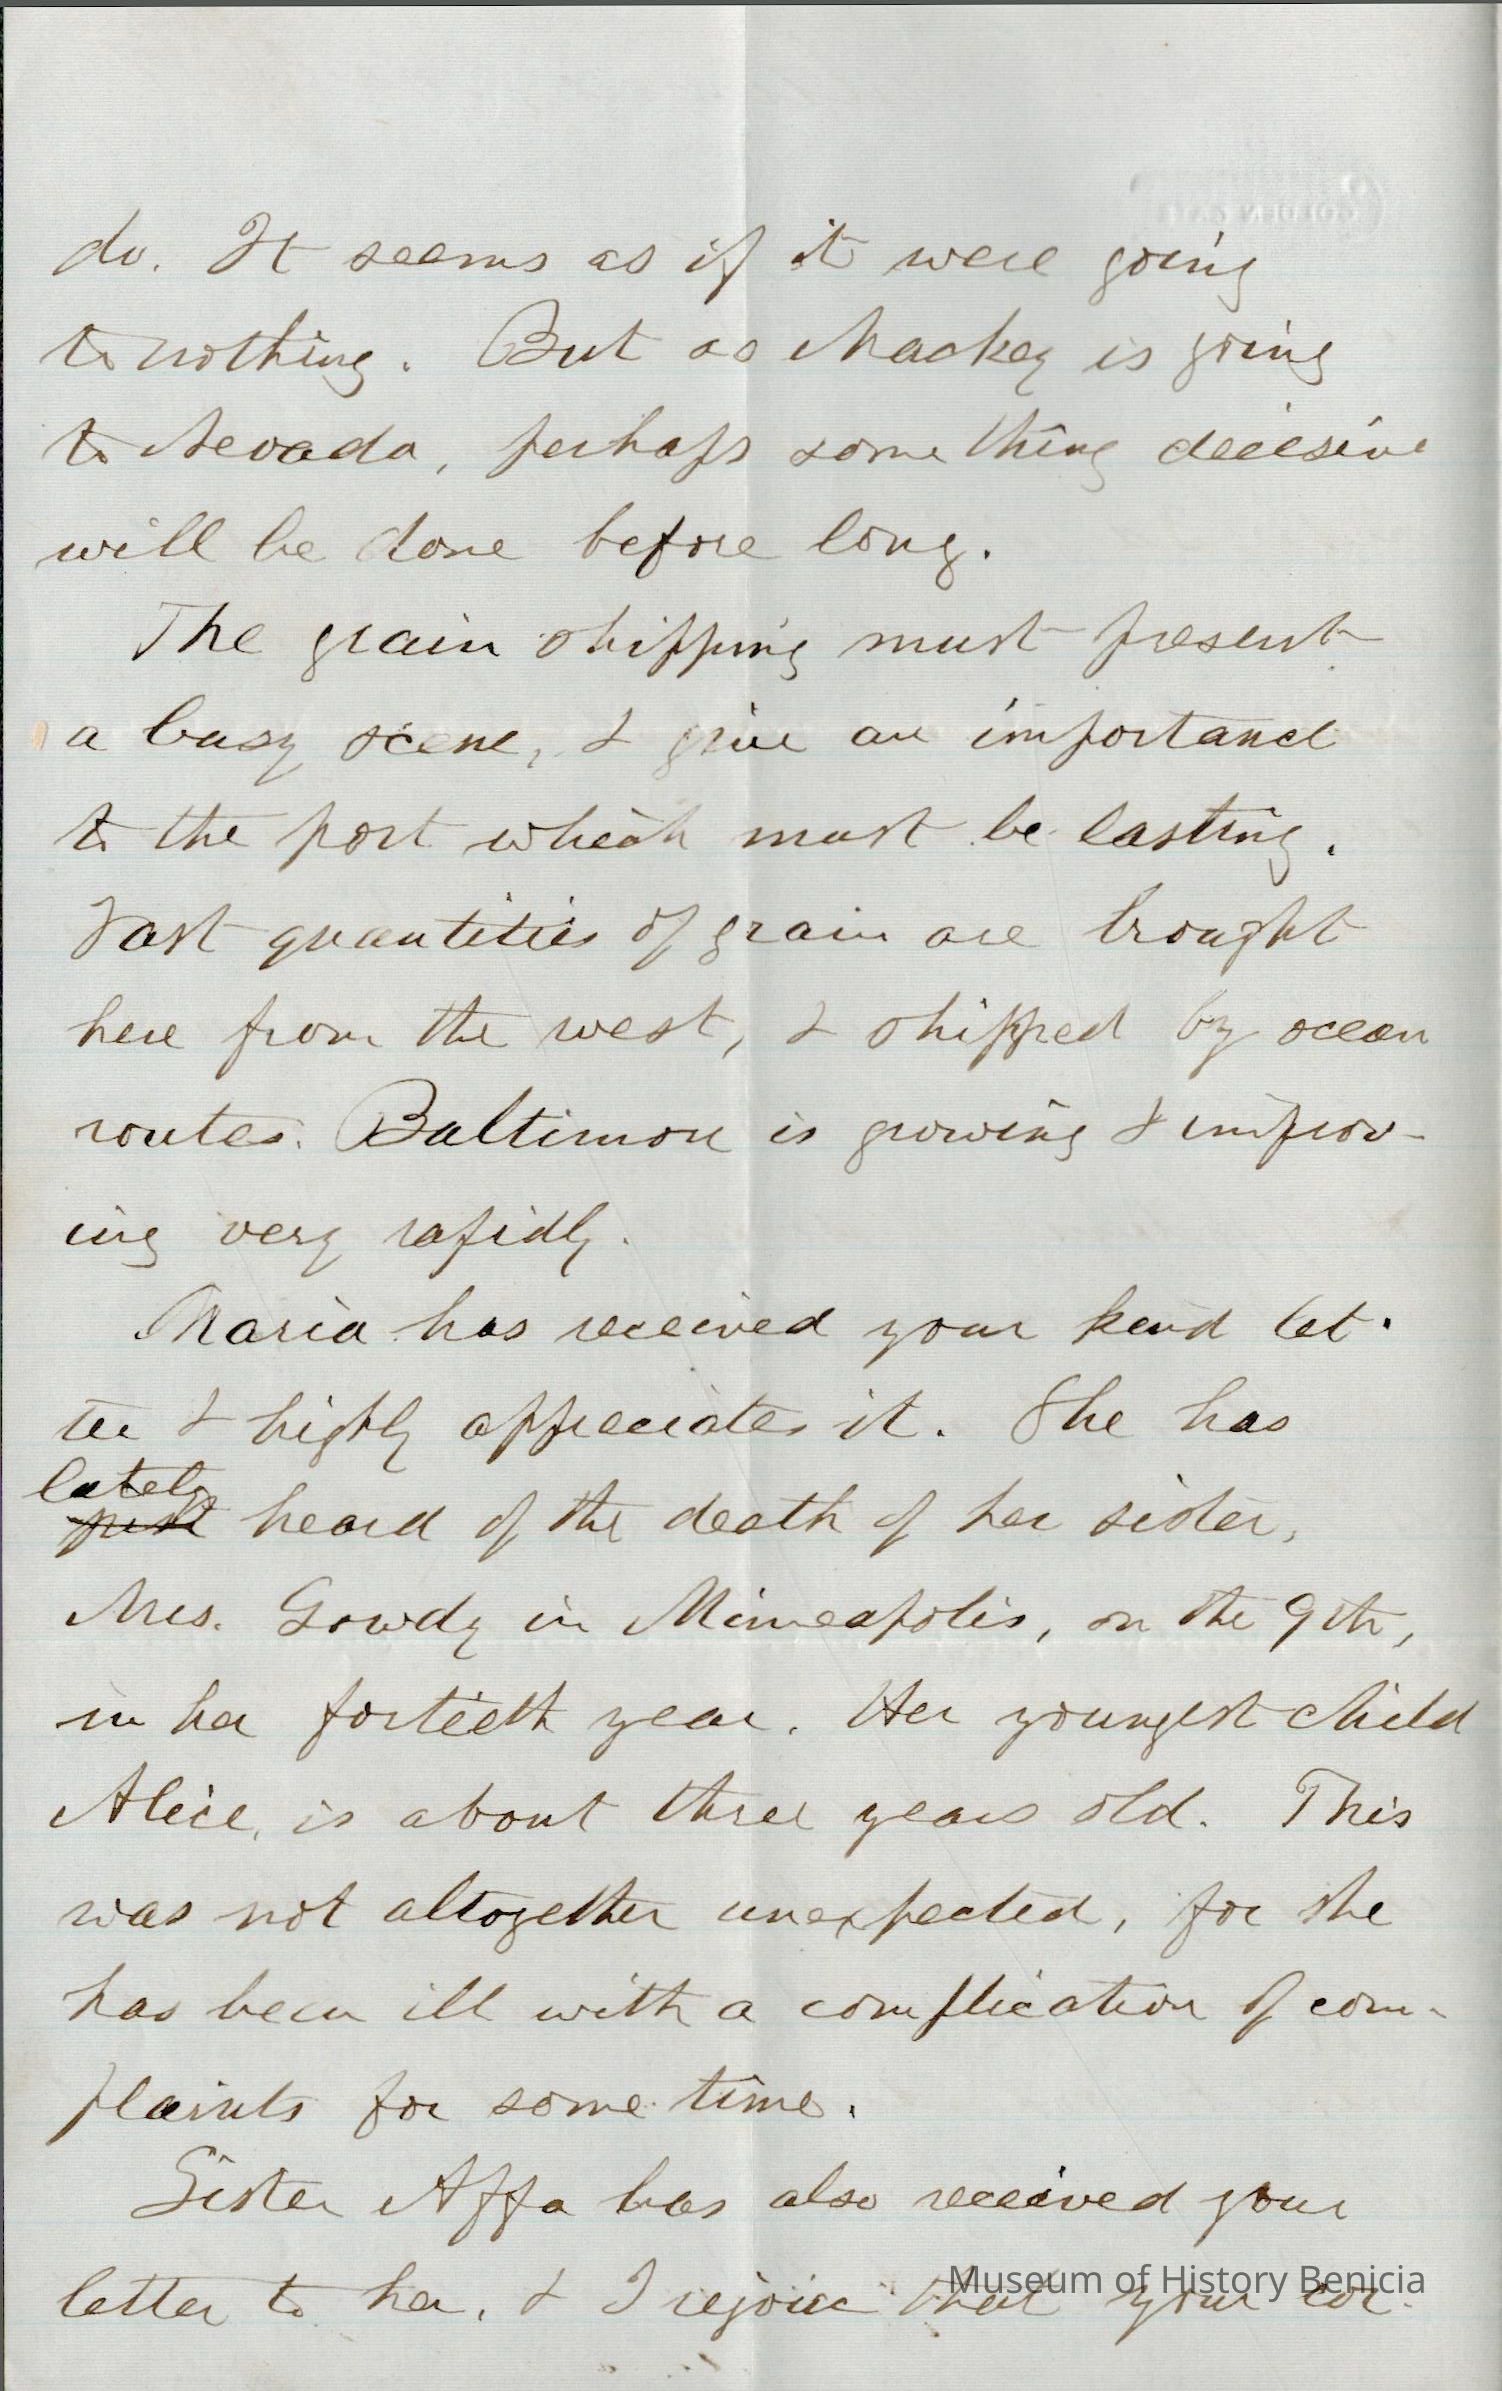 GOLDEN GATE
do. It seems as if it were going
to nothing. But as Mackey is going
to Nevada, perhaps some thing decisive
will be done before long.
The grain shipping must present
a busy scene, & give an importance
to the port which must be lasting.
Vast quantities of grain are brought
here from the west, & shipped by ocean
routes. Baltimore is growing & improv-
ing very rapidly.
Maria has received your kind let-
ter & highly appreciates it. She has
lately
just heard of the death of her sister,
Mrs. Gowdy in Minneapolis, on the 9th,
in her fortieth year. Her youngest child
Alice, is about three years old. This
was not altogether unexpected, for she
has been ill with a complication of com-
plaints for some time.
Sister Affa has also received your
letter to her, & I rejoice that your cor-
Museum of History Benicia